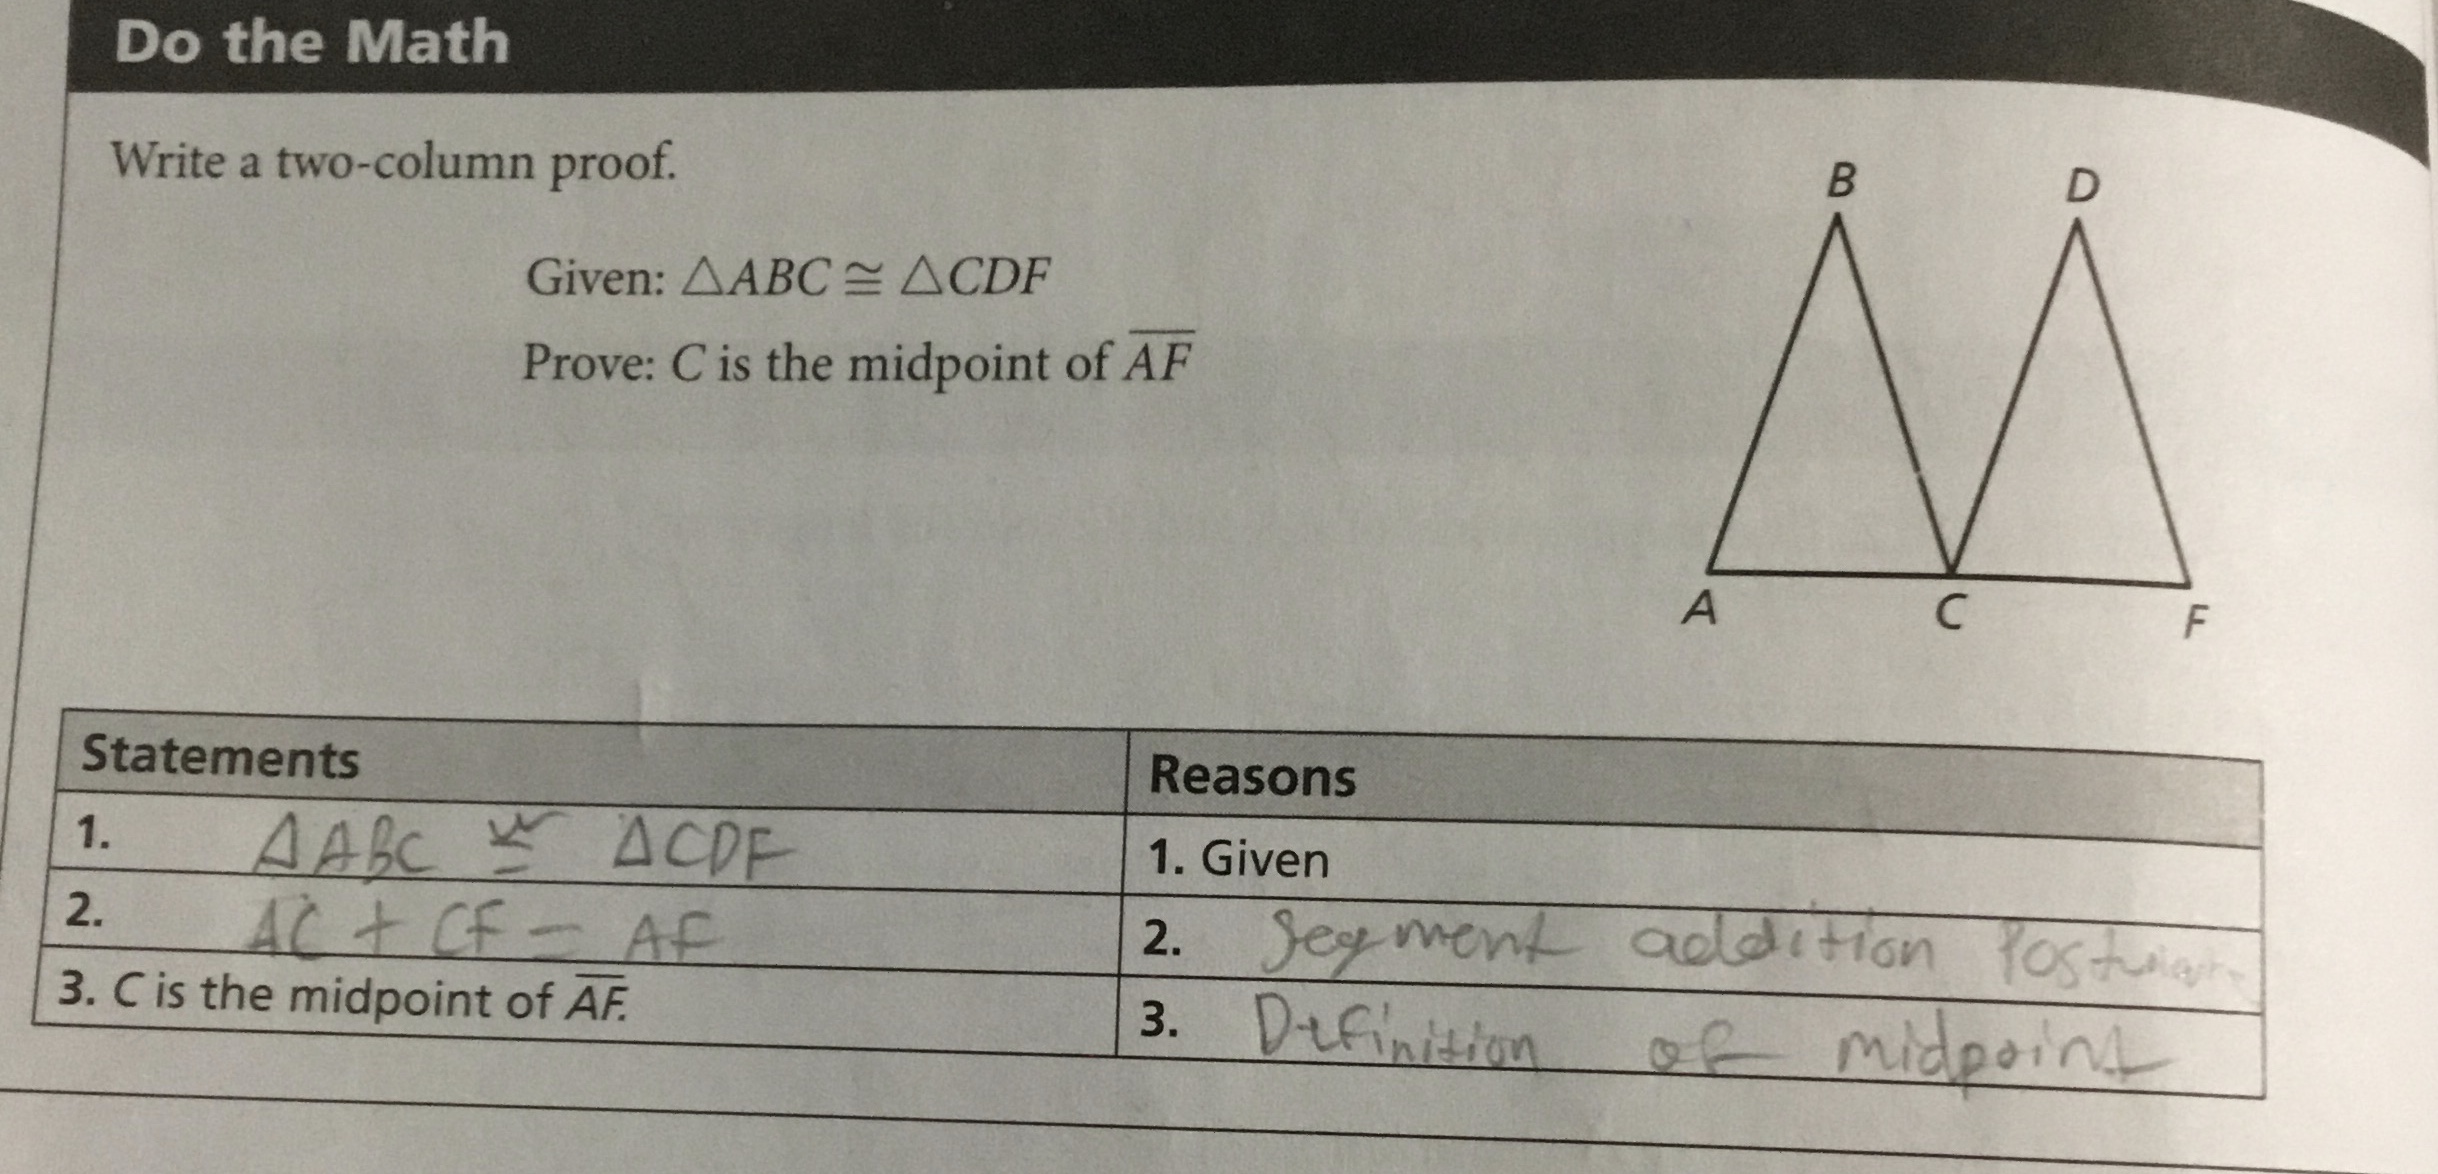 Do the Math
Write a two-column proof.
Given: △ABC ≅ △CDF
Prove: C is the midpoint of A̅F̅
B
D
A
C
F
Statements
Reasons
1. △ABC ≅ △CDF
1. Given
2. AC + CF = AF
2. Segment addition
3. C is the midpoint of A̅F̅.
3. Definition of midpoint